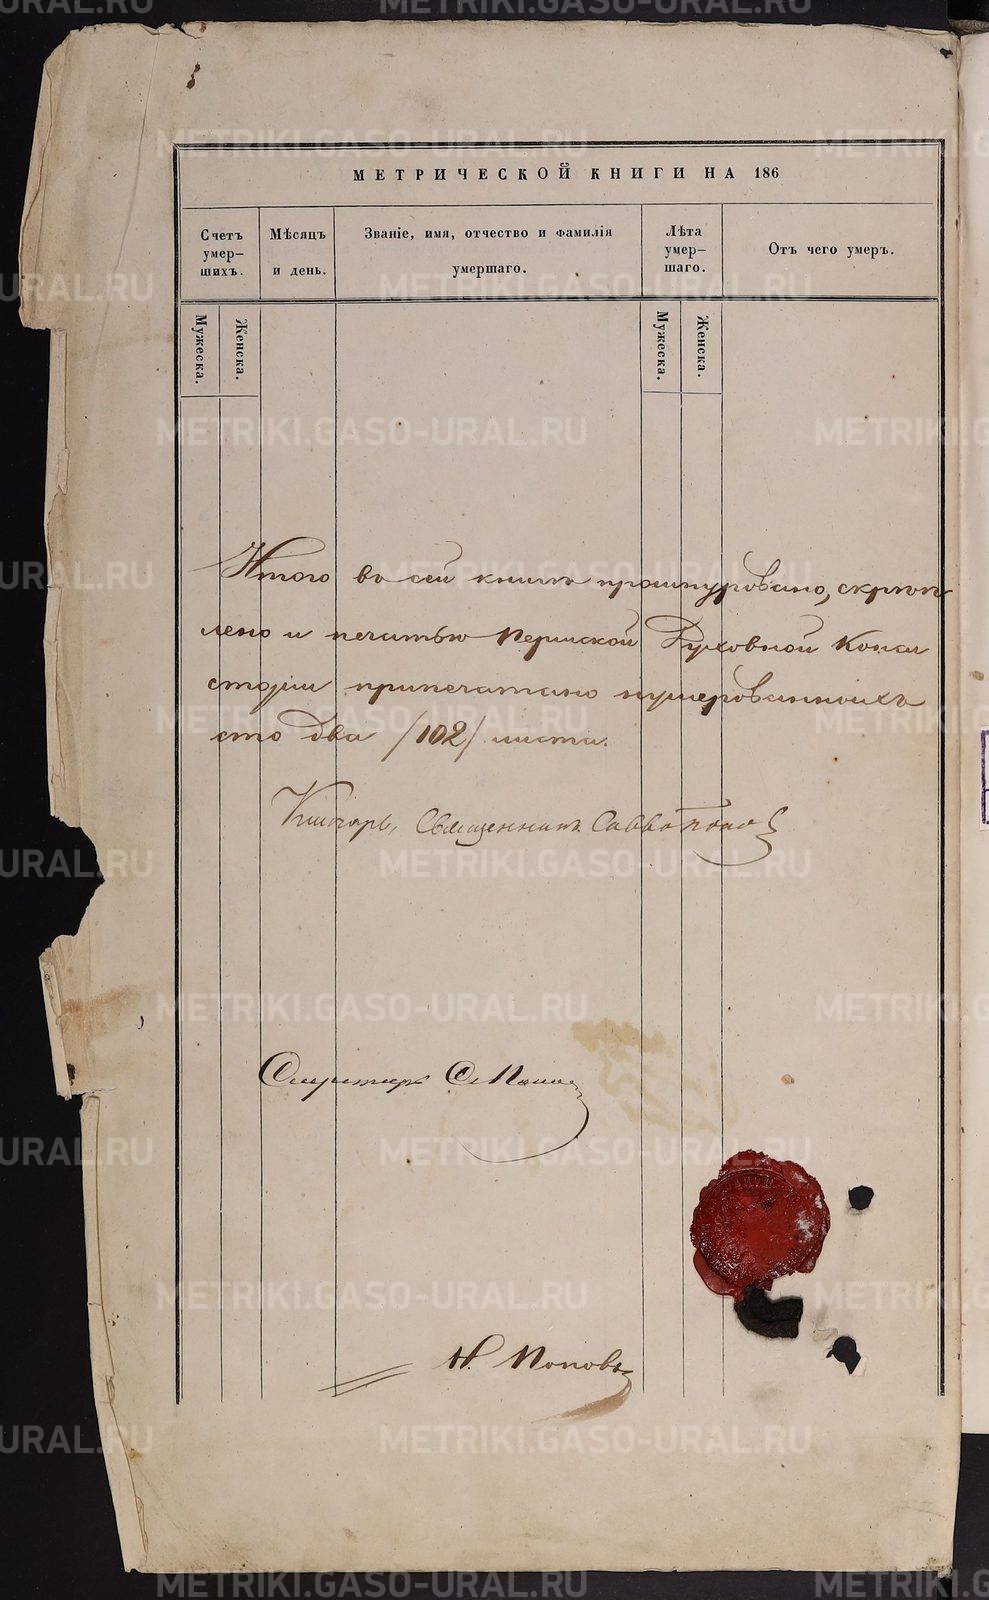 МЕТРИЧЕСКОЙ КНИГИ НА 186
Счетъ умер-шихъ.
Мѣсяцъ и день.
Званіе, имя, отчество и фамилія умершаго.
Лѣта умер-шаго.
Отъ чего умеръ.
Мужеска.
Женска.
Мужеска.
Женска.
Итого во сей книгѣ прошнуровано, скрѣп
лено и печатью Пермской Духовной Конси
сторіи припечатано нумерованныхъ
сто два /102/ листа.
Ключарь, Священникъ Савва Попов
Секретарь
Н. Поповъ
METRIKI.GASO-URAL.RU